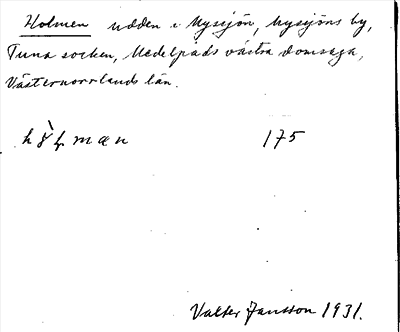 Holmen udden i Nysjön, Nysjöns by,
Tuna socken, Medelpads västra domsaga,
Västernorrlands län.
175
Valter Jansson 1931.